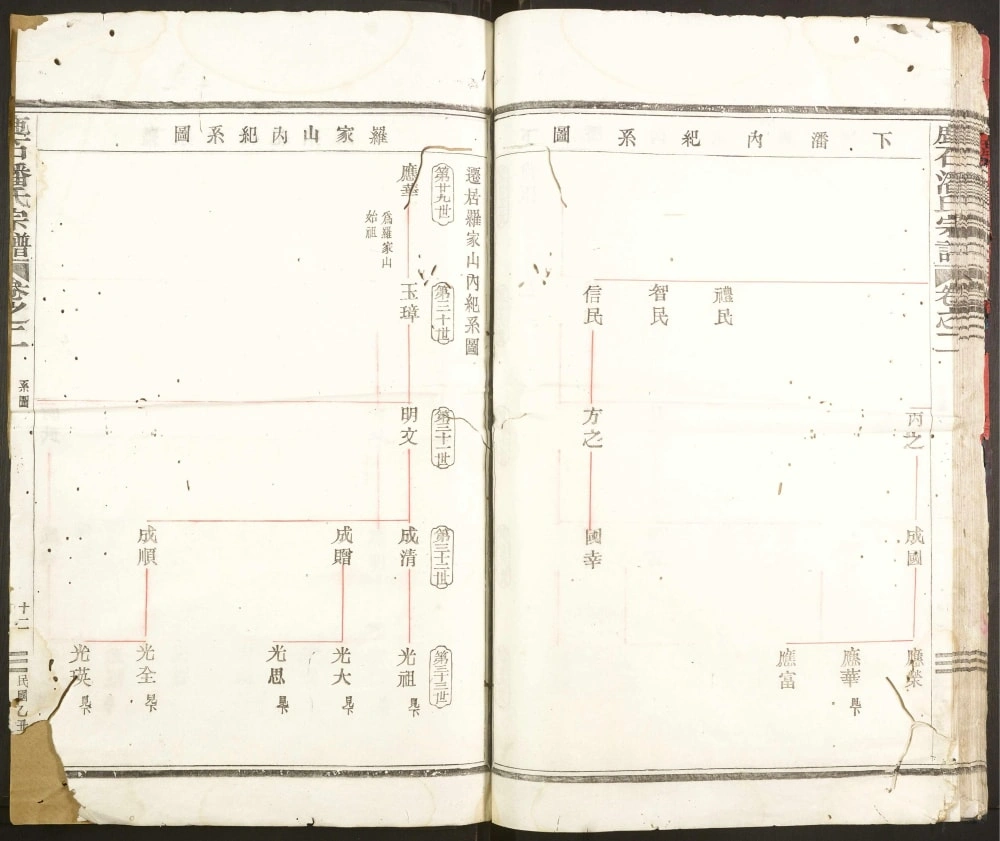 下潘內紀系圖
禮民
智民
信民
丙之
方之
成國
國幸
應榮
應華 見下
應富
潘氏宗譜
卷之二
羅家山內紀系圖
遷居羅家山內紀系圖
第廿九世
應華
為羅家山
始祖
第三十世
玉璋
第三十一世
明文
第三十二世
成清
成贈
成順
第三十三世
光祖 見下
光大 見下
光思 見下
光全 見下
光瑛 見下
石潘氏宗譜
卷之二
系圖
十二
民國乙丑